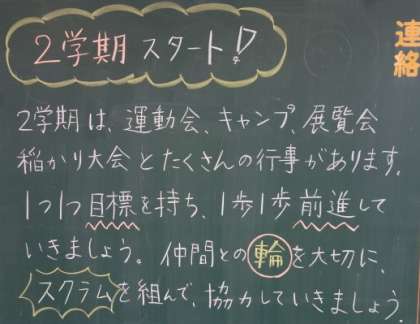 2学期スタート!?
連絡
2学期は、運動会、キャンプ、展覧会
稲かり大会とたくさんの行事があります。
1つ1つ目標を持ち、1歩1歩前進して
いきましょう。仲間との輪を大切に、
スクラムを組んで、協力していきましょう。